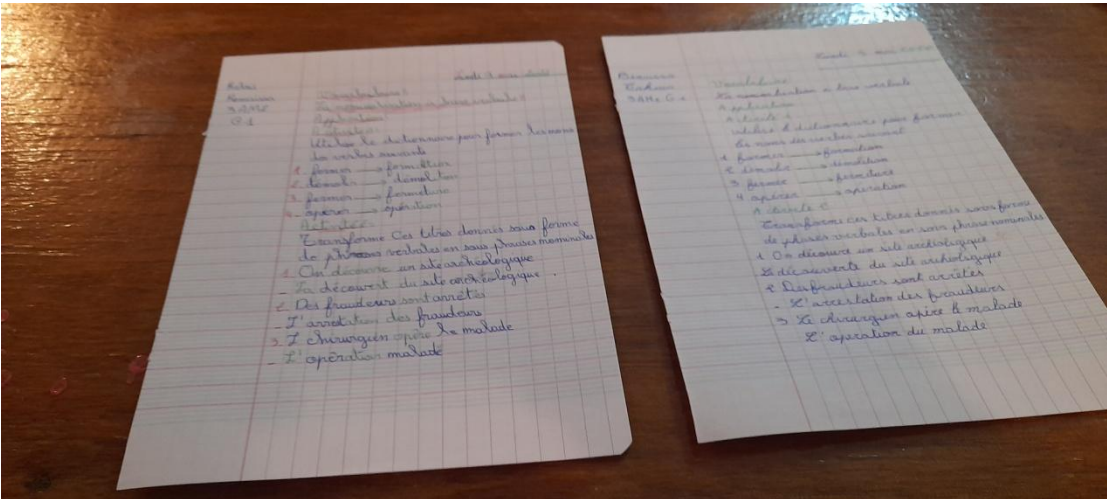 Lundi 9 mai
3AM2
G1
Vocabulaire :
La nominalisation à base verbale :
Application
Activité 1 :
Utilise le dictionnaire pour former les noms
des verbes suivants
1. former → formation
2. démolir → démolition
3. fermer → fermeture
4. opérer → opération
Activité 2 :
Transforme Ces titres donnés sous forme
de phrases verbales en sous phrases nominales
1. On découvre un site archéologique
- La découvert du site archéologique .
2. Des fraudeurs sont arrêtés
- L'arrêtation des fraudeurs
3. L chirurgien opère le malade
- L'opération malade
Lundi 9 mai
3AM2 G1
Vocabulaire
La nominalisation à base verbale
Application
Activité 1
utilise le dictionnaire pour former
les noms des verbes suivant
1 former → formation
2 démolir → démolition
3 fermée → fermeture
4 opérer → opération
Activité 2
Transforme ces titres donnés sous forme
de phrases verbales en sous phrase nominales
1 On découvre un site archéologique
La découverte du site archéologique
2 Des fraudeurs sont arrêtés
- L'arrestation des fraudeurs
3 Le chirurgien opère le malade
L'opration du malade